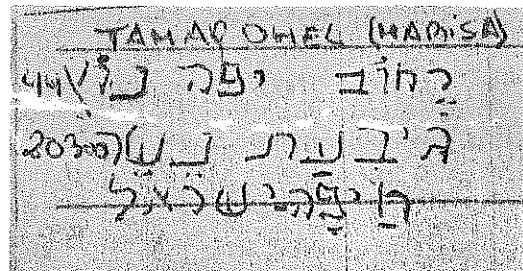 TAMAR OHEL (MARISA)
רחוב יפה 44
גיבעת נשר 20300
חיפה ישראל